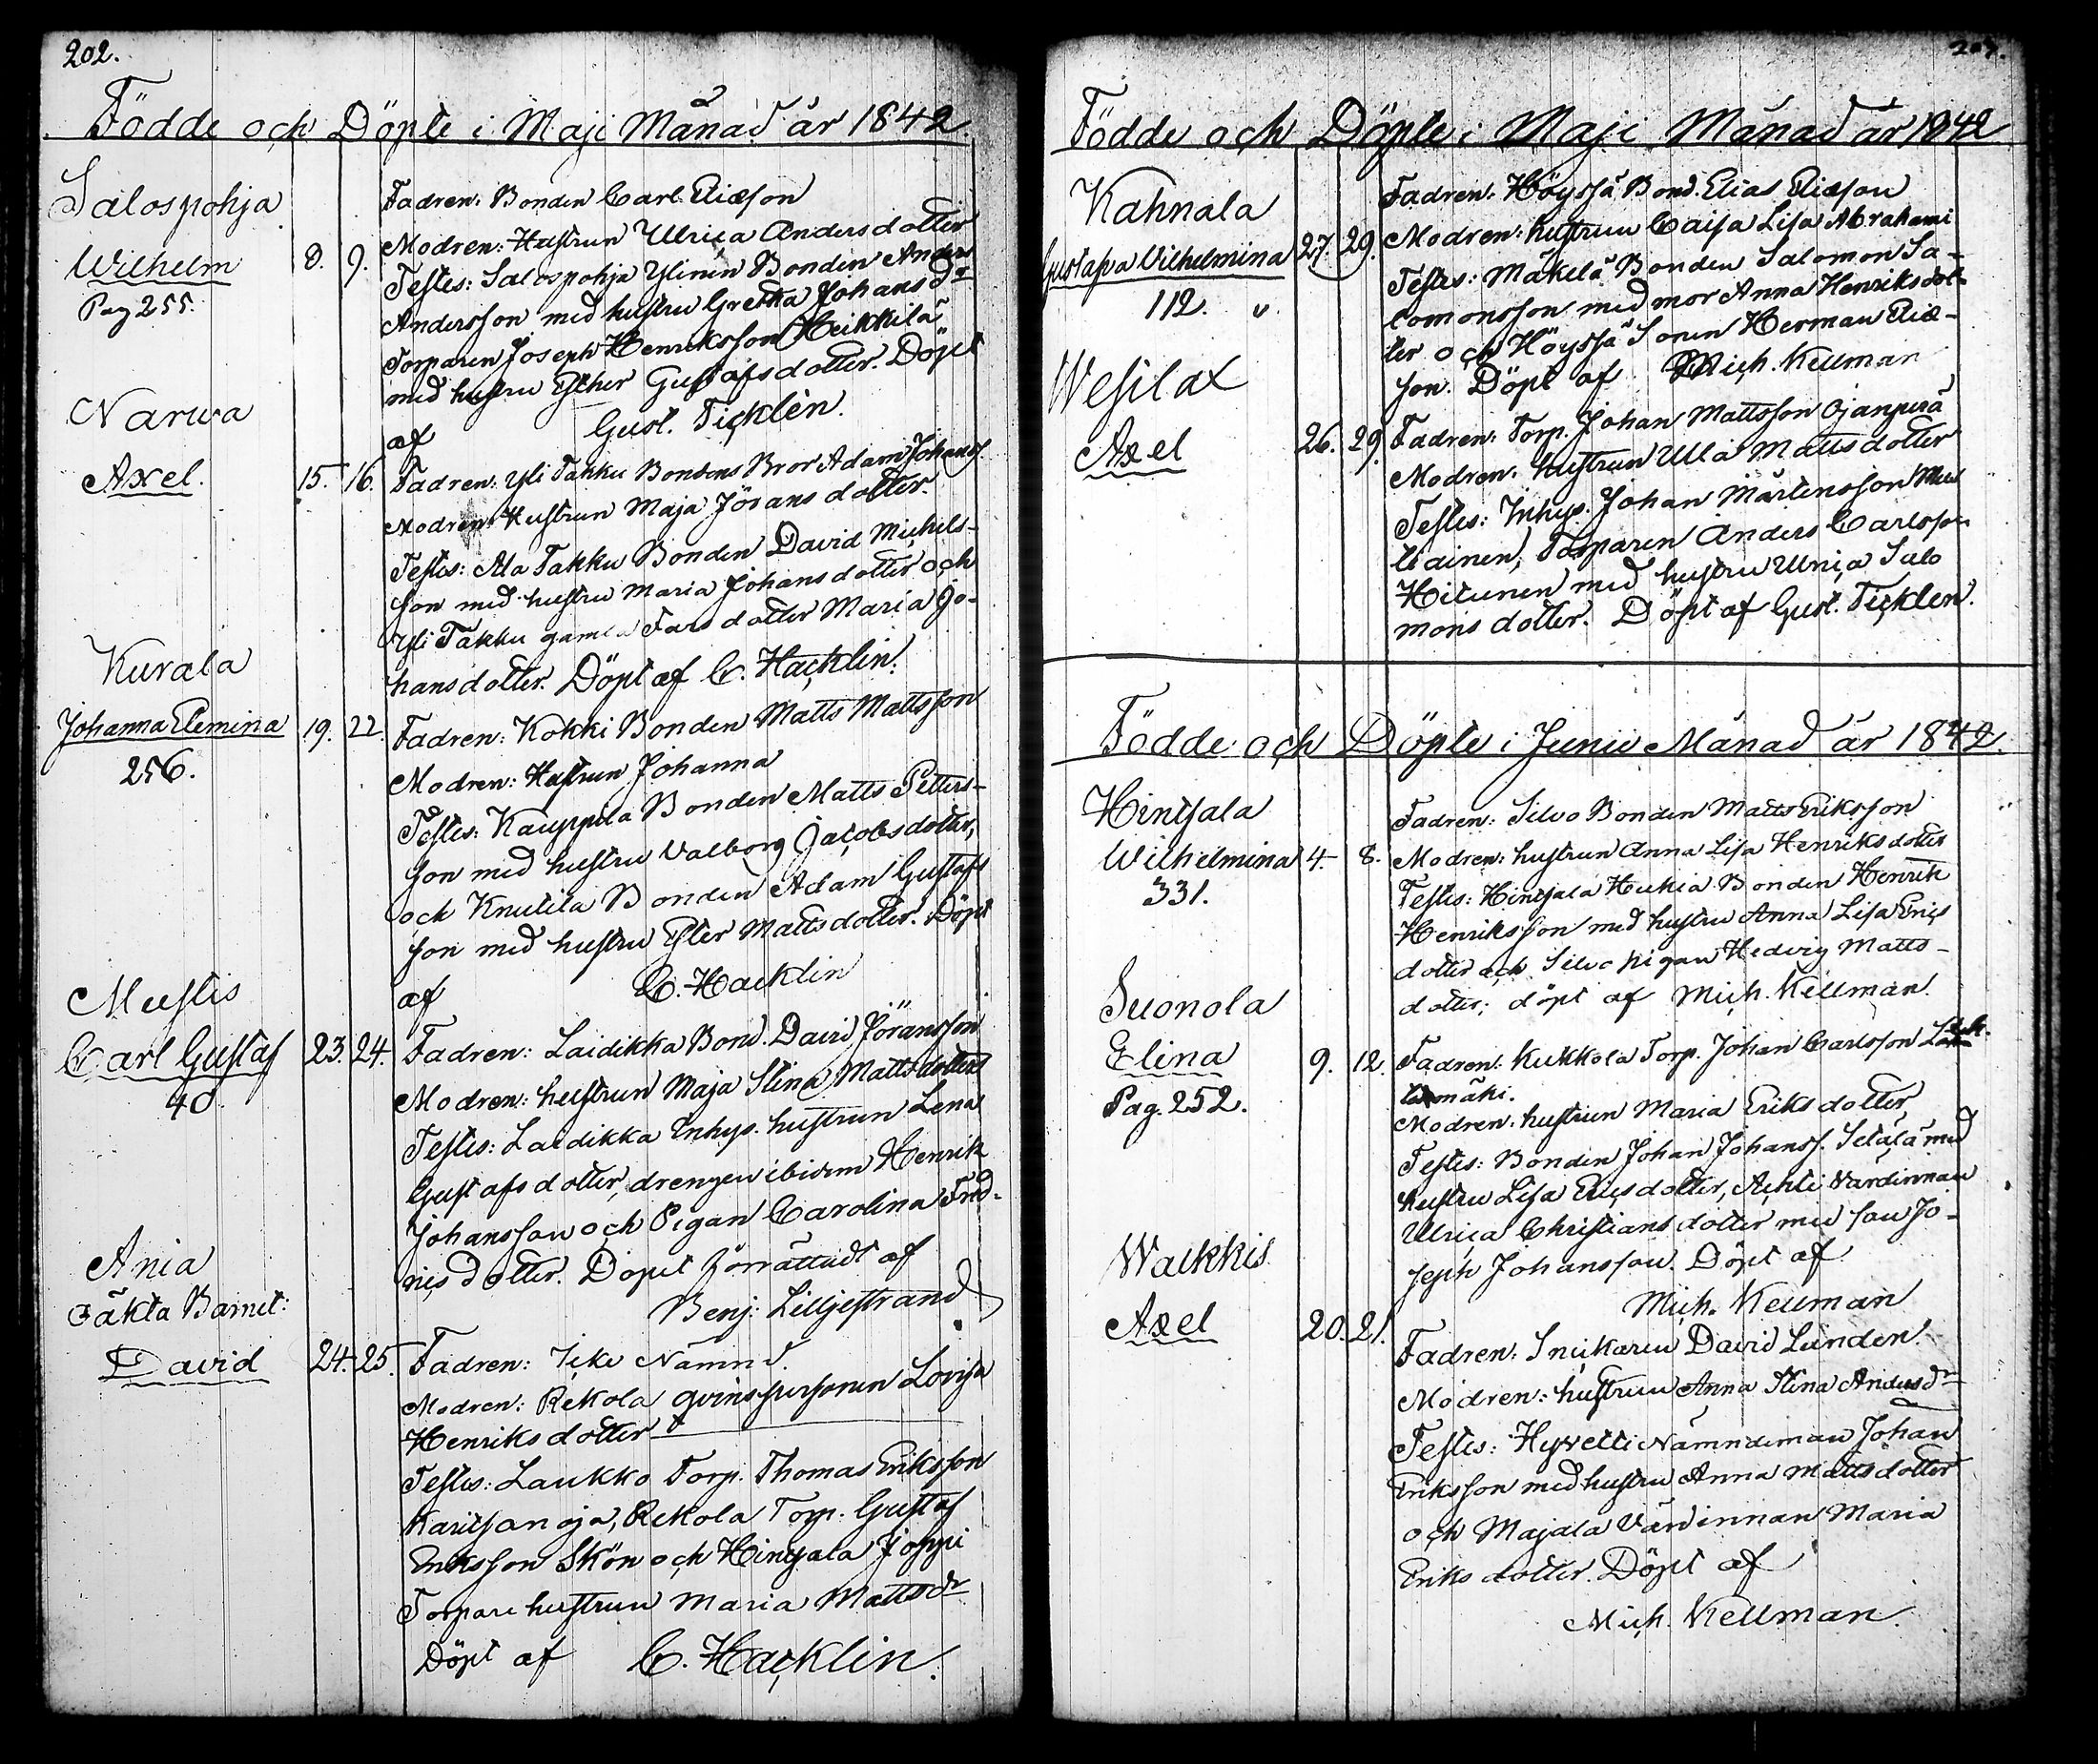 202.
Födde och Döpte i Maji Månad år 1842
Salospohja
Wilhelm 8. 9.
Pag 255.
Fadren: Bonden Carl Elieson
Modren: Hustrun Ulrica Andersdotter
Testes: Salospohja Ylinen Bonden Anders
Andersson med hustru Gretha Johansdr
Torparen Joseph Henriksson Heikkilä
med hustru Esther Gustafsdotter. Döpt
af Gust. Ticklén.
Narwa
Axel. 15. 16.
Fadren: Yli Takku Bondens Bror Adam Johanss
Modren: Hustrun Maja Jöransdotter.
Testes: Ala Takku Bonden David Michels-
son med hustru Maria Johansdotter och
Yli Takku gamla Fars dotter Maria Jo-
hansdotter. Döpt af C. Hacklin.
Kurala
Johanna Elemina 19. 22.
256.
Fadren: Kokki Bonden Matts Mattsson
Modren: Hustrun Johanna
Testes: Kauppila Bonden Matts Petters-
son med hustru Valborg Jacobsdotter,
och Knutila Bonden Adam Gustafs
son med hustru Ester Mattsdotter. Döpt
af C. Hacklin
Mustis
Carl Gustaf 23. 24.
40.
Fadren: Laidikka Bond. David Jöransson
Modren: hustrun Maja Stina Mattsdotter
Testes: Laidikka Inhys. hustrun Lena
Gustafsdotter, drengen ibidem Henrik
Johansson och Pigan Carolina Fred-
ricsdotter. Dopet förrättadt af
Benj: Lilljestrand
Ania
Oäkta Barnet:
David 24. 25.
Fadren: Icke Nämnd.
Modren: Rekola qvinspersonen Lovisa
Henriksdotter
Testes: Laukko Torp. Thomas Eriksson
Karitsanoja, Rekola Torp. Gustaf
Eriksson Skön och Hinsala Joppi
Torpare hustrun Maria Mattsdr
Döpt af C. Hacklin.
Födde och Döpte i Maji Månad år 1842
Kahnala
Gustafva Vilhelmina 27. 29.
112. "
Fadren: Höyssä Bond. Elias Elieson
Modren: hustrun Caisa Lisa Abrahami
Testes: Mäkelä Bonden Salomon Sa-
lomonsson med mor Anna Henriksdot-
ter och Höyssä Sonen Herman Elie-
son. Döpt af Mich. Kellman
Wesilax
Axel 26. 29.
Fadren: Torp. Johan Mattsson Ojanperä
Modren: hustrun Ulla Mattsdotter
Testes: Inhys. Johan Mårtensson Mus
tainen, Torparen Anders Carlsson
Hitunen med hustru Ulrica Salo
monsdotter. Döpt af Gust. Ticklén.
Födde och Döpte i Junii Månad år 1842.
Hinsala
Wilhelmina 4. 8.
331.
Fadren: Silvo Bonden Matts Eriksson
Modren: hustrun Anna Lisa Henriksdotter
Testes: Hinsala Heikia Bonden Henrik
Henriksson med hustru Anna Lisa Erics
dotter och Silvo pigan Hedvig Matts-
dotter; döpt af Mich. Kellman.
Suonola
Elina 9. 12.
Pag. 252.
Fadren: Kukkola Torp. Johan Carlsson
mäki.
Modren: hustrun Maria Eriksdotter
Testes: Bonden Johan Johanss. Setälä med
hustru Lisa Ericsdotter, Achti Värdinnan
Ulrica Christiansdotter med son Jo-
seph Johansson. Döpt af
Mich. Kellman
Walkkis
Axel 20. 21.
Fadren: Snickaren David Lunden.
Modren: hustrun Anna Stina Andersdr
Testes: Hyvetti Nämndeman Johan
Eriksson med hustru Anna Mattsdotter
och Majala Värdinnan Maria
Eriksdotter. Döpt af
Mich. Kellman.